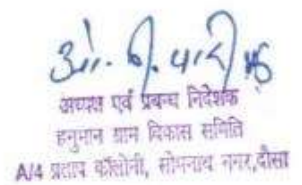 अध्यक्ष एवं प्रबन्ध निदेशक
हनुमान ग्राम विकास समिति
A/4 प्रताप कॉलोनी, सोमनाथ नगर,दौसा